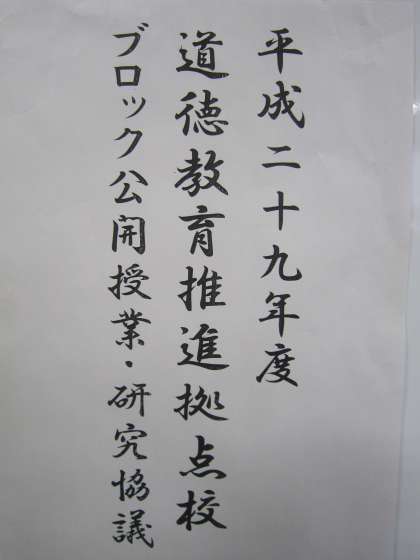 平成二十九年度
道徳教育推進拠点校
ブロック公開授業・研究協議